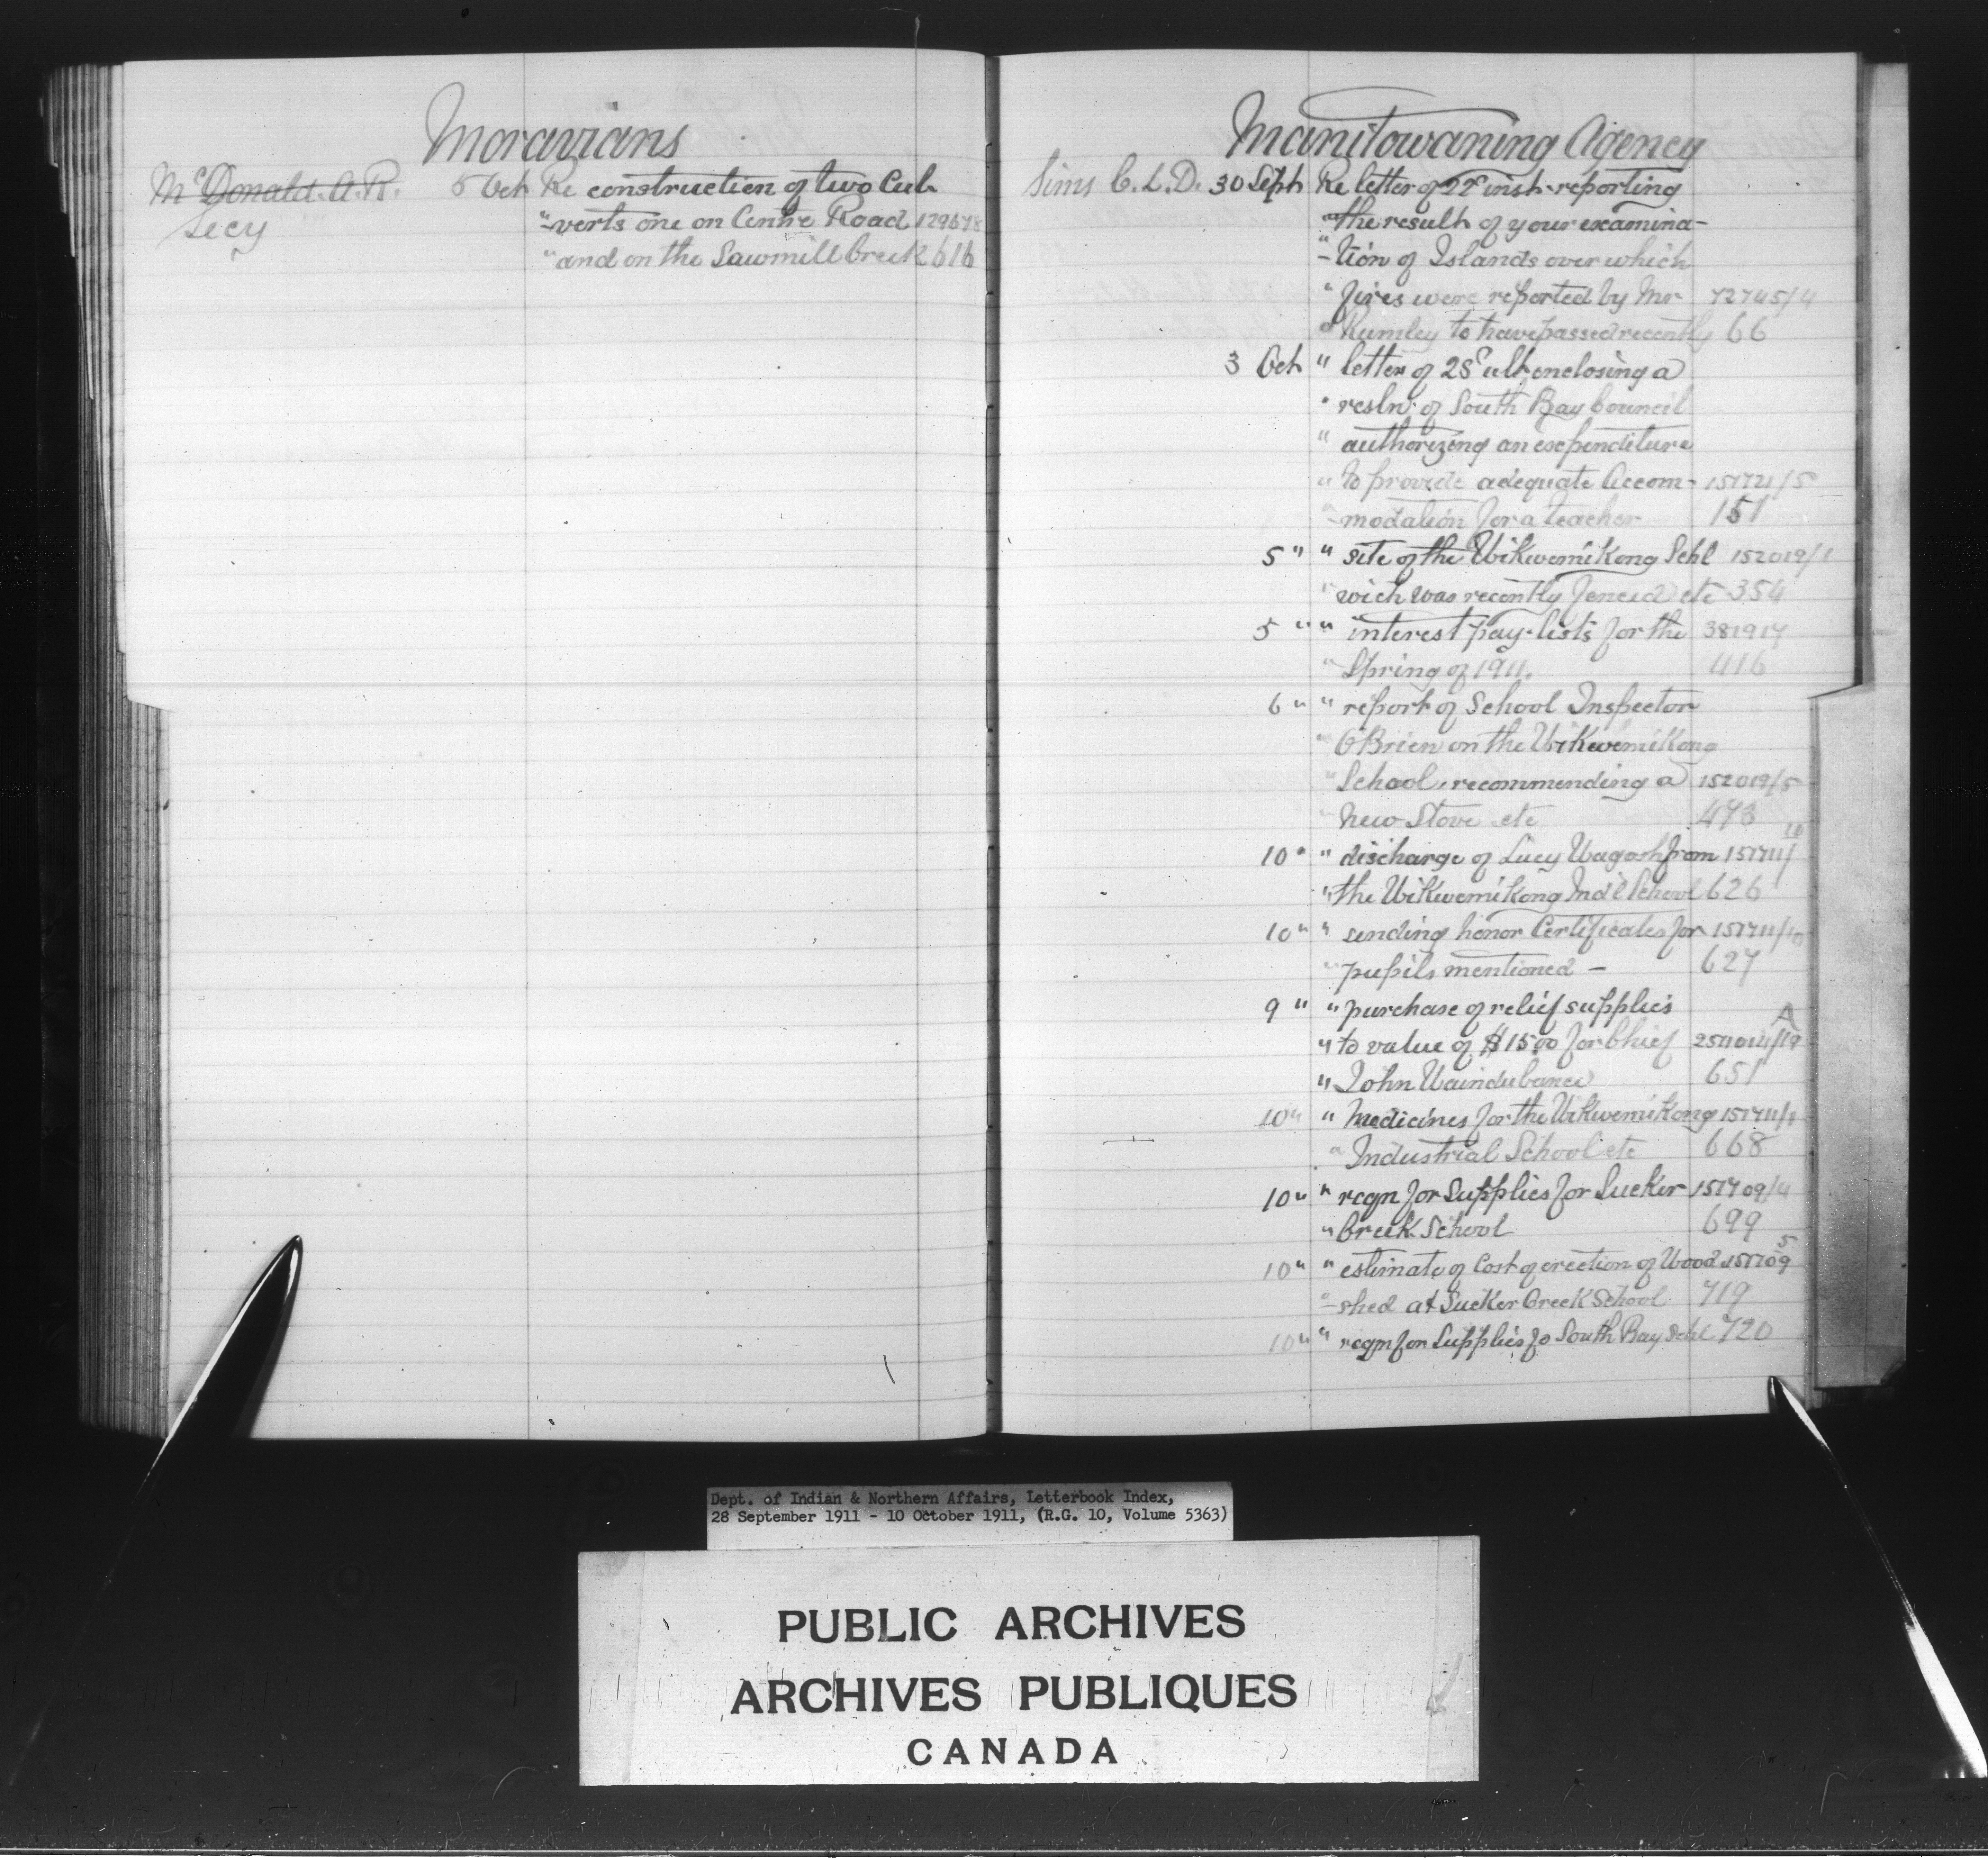 Moravians
McDonald A.R. 5 Oct Re construction of two Cul-
Secy " -verts one on Centre Road 129678
" and on the Sawmill Creek 616
Manitowaning Agency
Sims C.L.D. 30 Sept Re letter of 22d inst reporting
" the result of your examina-
" -tion of Islands over which
" fires were reported by Mr 72745/4
" Rumley to have passed recently 66
3 Oct " letter of 28 ult enclosing a
" resln of South Bay Council
" authorizing an expenditure
" to provide adequate Accom- 151721/5
" -modation for a teacher 151
5 " " site of the Wikwemikong Schl 152019/1
" wich was recently fenced etc 354
5 " " interest pay-lists for the 381917
" Spring of 1911. 416
6 " " report of School Inspector
" O'Brien on the Wikwemikong
" School, recommending a 152019/5
" New Stove etc 493
10 " " discharge of Lucy Wagosh from 151711/10
" the Wikwemikong Indl School 626
10 " " sending honor Certificates for 151711/10
" pupils mentioned — 627
9 " " purchase of relief supplies
" to value of $15.00 for Chief 254014/19 A
" John 651
10 " " Medicines for the Wikwemikong 151711/1
" Industrial School etc 668
10 " " reqn for Supplies for Sucker 151709/4
" Creek School 699
10 " " estimate of Cost of erection of Wood 151709 5
" -shed at Sucker Creek School 719
10 " " reqn for Supplies fo South Bay Schl 720
Dept. of Indian & Northern Affairs, Letterbook Index,
28 September 1911 - 10 October 1911, (R.G. 10, Volume 5363)
PUBLIC ARCHIVES
ARCHIVES PUBLIQUES
CANADA